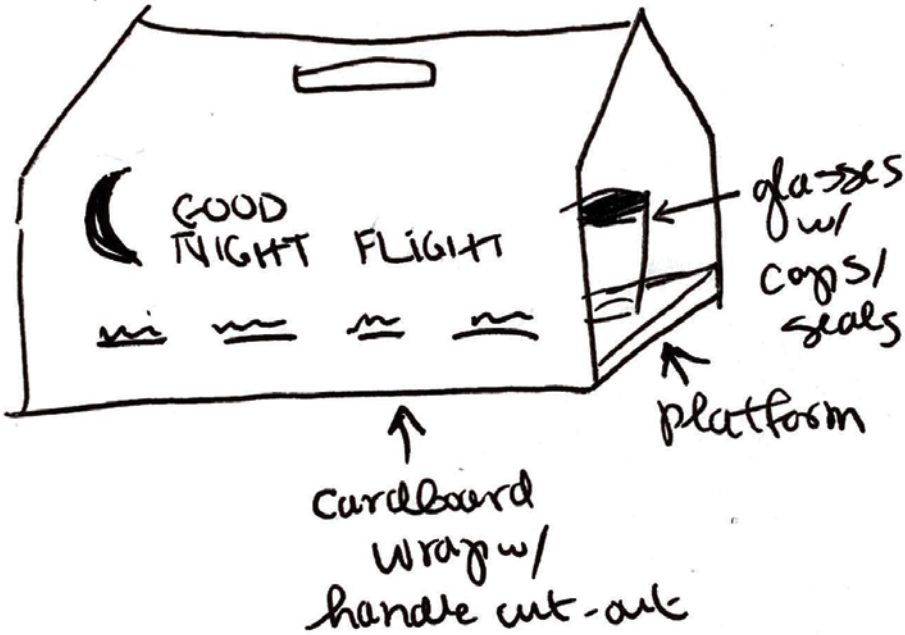 GOOD
NIGHT FLIGHT
glasses
w/
caps/
seals
platform
cardboard
wrap w/
handle cut-out